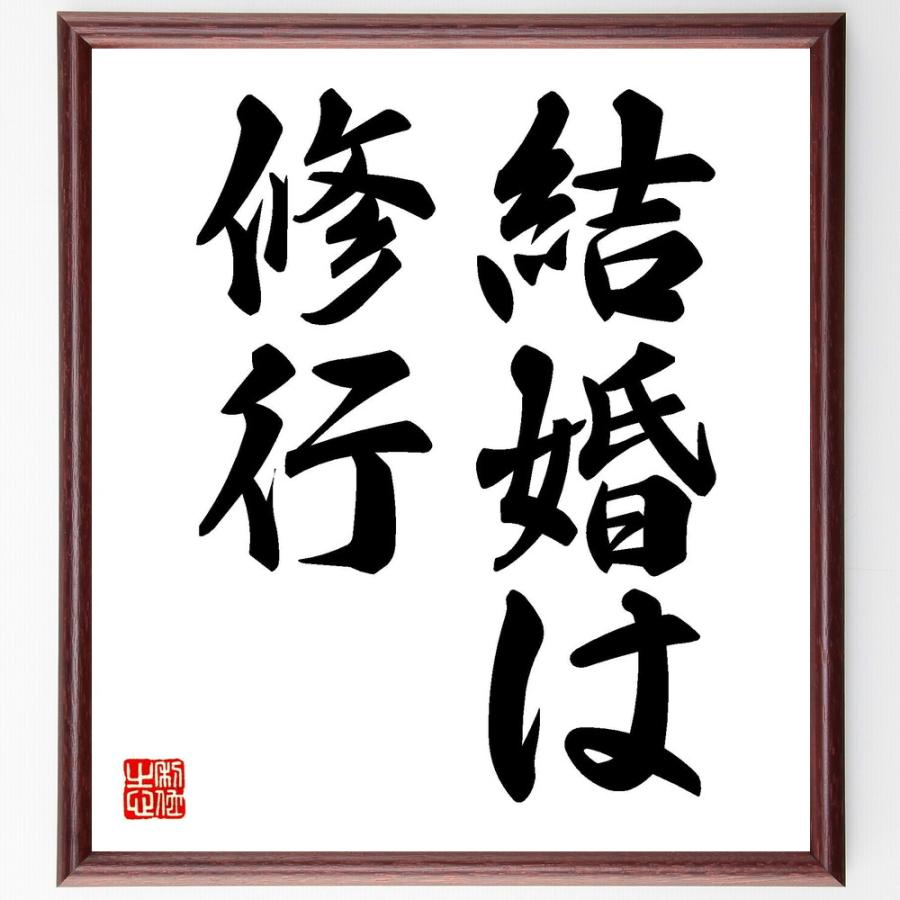 結婚は
修行